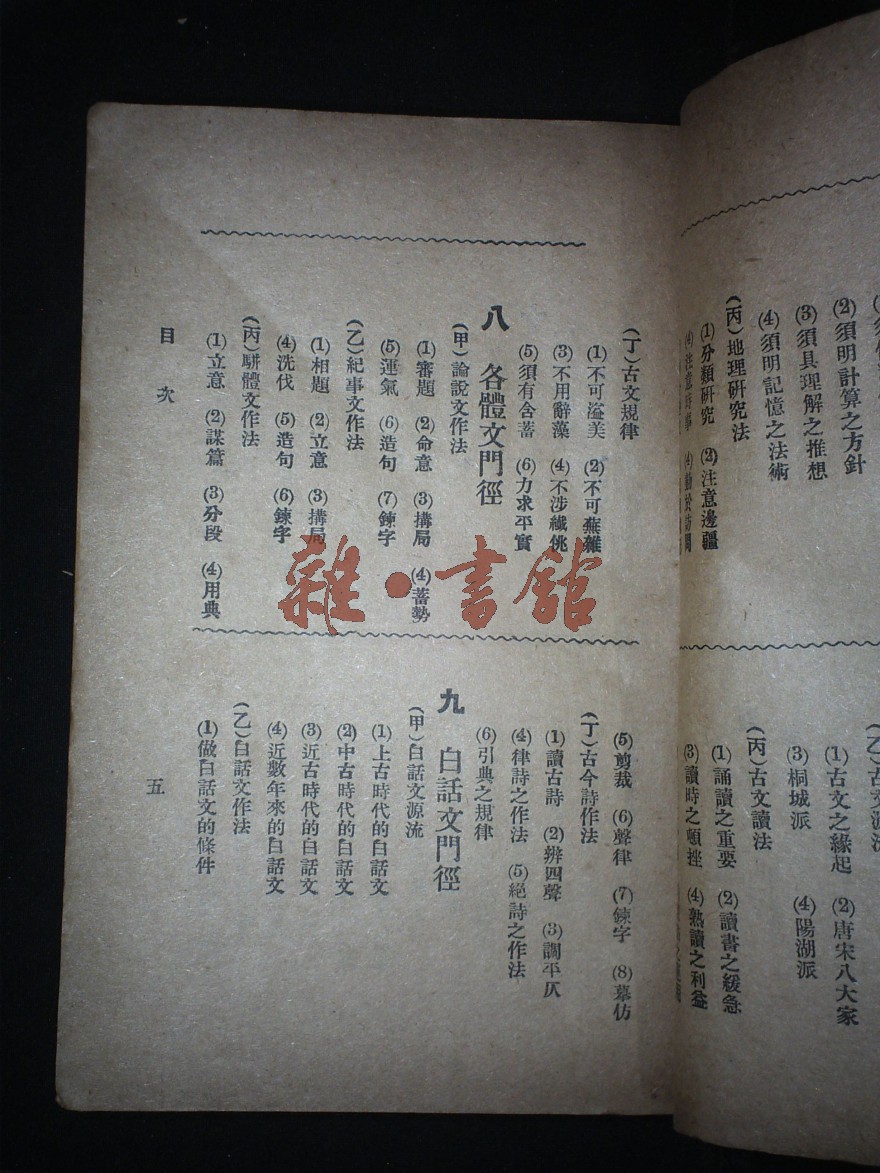 (2) 須明計算之方針
(3) 須具理解之推想
(4) 須明記憶之法術
(丙) 地理研究法
(1) 分類研究 (2) 注意邊疆
(1) 古文之緣起 (2) 唐宋八大家
(3) 桐城派 (4) 陽湖派
(丙) 古文讀法
(1) 誦讀之重要 (2) 讀書之緩急
(3) 讀時之頓挫 (4) 熟讀之利益
(丁) 古文規律
(1) 不可溢美 (2) 不可蕪雜
(3) 不用辭藻 (4) 不涉纖佻
(5) 須有含蓄 (6) 力求平實
八 各體文門徑
(甲) 論說文作法
(1) 審題 (2) 命意 (3) 搆局 (4) 蓄勢
(5) 運氣 (6) 造句 (7) 鍊字
(乙) 紀事文作法
(1) 相題 (2) 立意 (3) 搆局
(4) 洗伐 (5) 造句 (6) 鍊字
(丙) 駢體文作法
(1) 立意 (2) 謀篇 (3) 分段 (4) 用典
(5) 剪裁 (6) 聲律 (7) 鍊字 (8) 摹仿
(丁) 古今詩作法
(1) 讀古詩 (2) 辨四聲 (3) 調平仄
(4) 律詩之作法 (5) 絕詩之作法
(6) 引典之規律
九 白話文門徑
(甲) 白話文源流
(1) 上古時代的白話文
(2) 中古時代的白話文
(3) 近古時代的白話文
(4) 近數年來的白話文
(乙) 白話文作法
(1) 做白話文的條件
目次
五
雜·書館